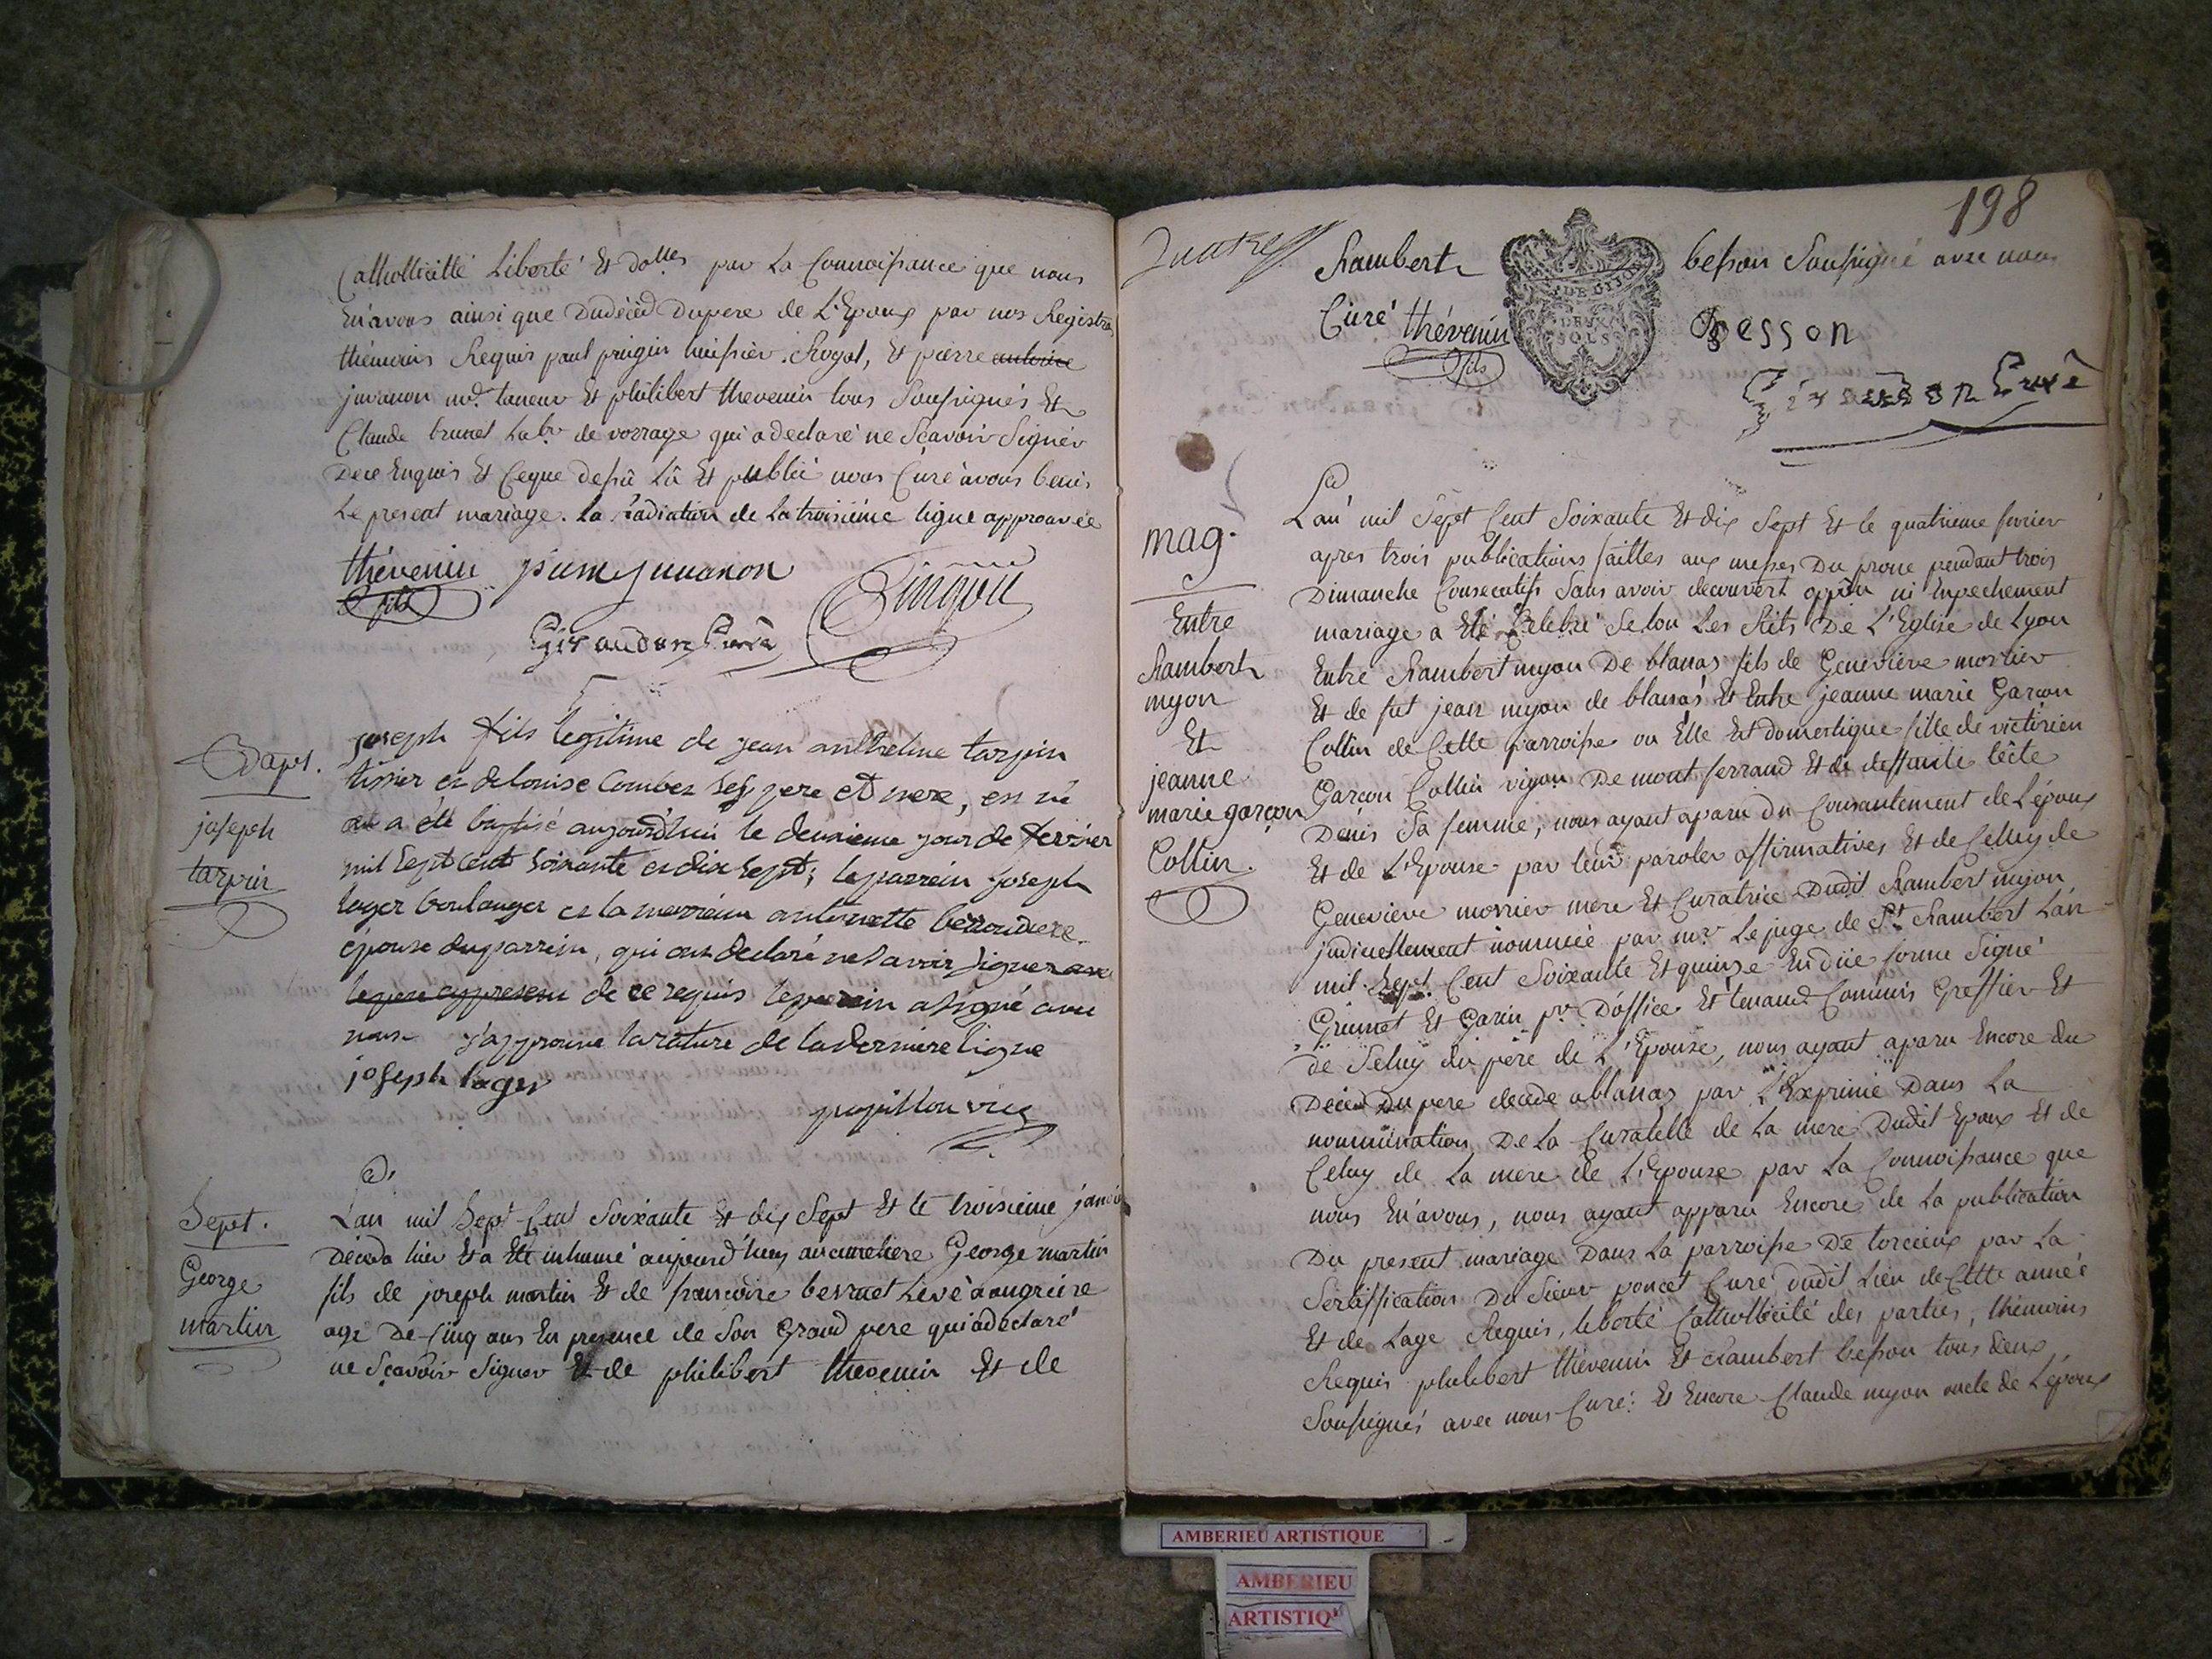 Catholicitté Liberté Et dottes par La Connoissance que nous
En avons ainsi que Dudécéd Dupere de L'Epoux par nos Registres
thémoins Requis paul pingin huissier Royal, Et pierre antoine
juvanon md. taneur Et philibert thevenin tous Soussignés Et
Claude brunet Labr. de vorrage qui a declaré ne Sçavoir Signer
De ce Enquis Et Ceque dessû Lû Et publié nous Curé avons benis
Le present mariage. La radiation de La troisiéme ligne approuvée
thévenin fils
pierre juvanon
Girauddon Curé
Bapt.
joseph
tarpin
joseph fils legitime de jean anthelme tarpin
tissier et de louise Combet Ses pere et mere, est né
et a été baptisé aujourd'huis le deuxieme jour de fevrier
mil Sept cent soixante et dix sept; le parrein joseph
loger boulanger et la marreine antoinette
épouse du parrein, qui ont declaré ne Savoir Signer
le pere cy present de ce requis le parrein a signé avec
nous j'approuve la rature de la derniere ligne
joseph loger
papillon vice
Sept.
George
martin
L'an mil Sept Cent Soixante Et dix Sept Et le troisieme janvier
Décéda hier Et a Eté inhumé aujourd'huy au cimetiere George martin
fils de joseph martin Et de francoise bernet
age De Cinq ans En presence de Son Grand pere qui a declaré
ne Sçavoir Signer Et de philibert thevenin Et de
198
quatre
Rambert besson Soussigné avec nous
Curé thévenin fils
Besson
Giraudon Curé
DEUX
SOLS
mag.
Entre
Rambert
myon
Et
jeanne
marie garçon
Collin.
L'an mil Sept Cent Soixante Et dix Sept Et le quatrieme fevrier
apres trois publications faittes aux messes Du prone pendant trois
Dimanche Consecutifs Sans avoir decouvert oppôn ni Enpechement
mariage a Eté Celebré Selon Les Rits De L'Eglise de Lyon
Entre Rambert myon De blanas fils de Geneviève morrier
Et de fut jean myon de blanas Et Entre jeanne marie Garcon
Collin de Cette parroisse ou Elle Est domestique fille de victorien
Garcon Collin vigon De mont ferrand Et de deffunte
Denis Sa femme, nous ayant aparu du Consantement de L'époux
Et de L'Epouse par leur paroles affirmatives Et de Celluy de
Geneviève morrier mere Et Curatrice Dudit Rambert myon
judiciellement nommée par mr. Le juge de St. Rambert L'an
mil Sept Cent Soixante Et quinze En due forme Signé
Grumet Et Garin pr. D'office Et tenand Commis Greffier Et
de Seluy du pére de L'Epouse, nous ayant aparu Encore du
Décéd Du pere decede a blanas par L'Exprimé Dans La
nommination De La Curatelle de La mere Dudit Epoux Et de
Celuy de La mere de L'Epouse par La Connoissance que
nous En avons, nous ayant apparu Encore de La publication
Du present mariage Dans La parroisse De torcieux par La
Sertiffication Du Sieur poncet Curé dudit Lieu de Cette année
Et de Lage Requis, liberté Catholicité des parties, thémoins
Requis philibert thévenin Et Rambert besson tous deux
Soussignés avec nous Curé: Et Encore Claude myon oncle de L'époux
AMBERIEU ARTISTIQUE
AMBERIEU
ARTISTIQ